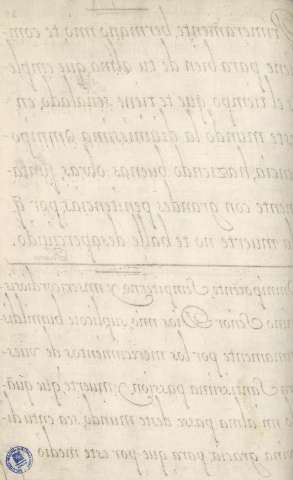 Primeramente hermano mio, te com
uiene para bien de tu alma, que emple
es el tiempo que te tiene señalado, en
este mundo la diuinissima omnipo
tencia, haziendo buenas obras, junta-
mente con grandes penitencias, por q̃
la muerte no te halle desapercebido.
Omnipotente, Sempiterno y misericordiossi
ssimo Señor Dios mio, suplicoos humildis
simamente por los merecimientos de vues-
tra Santissima passion, y muerte que quã
do mi alma passe deste mundo, sea en tu di-
uina gracia, para que por este medio